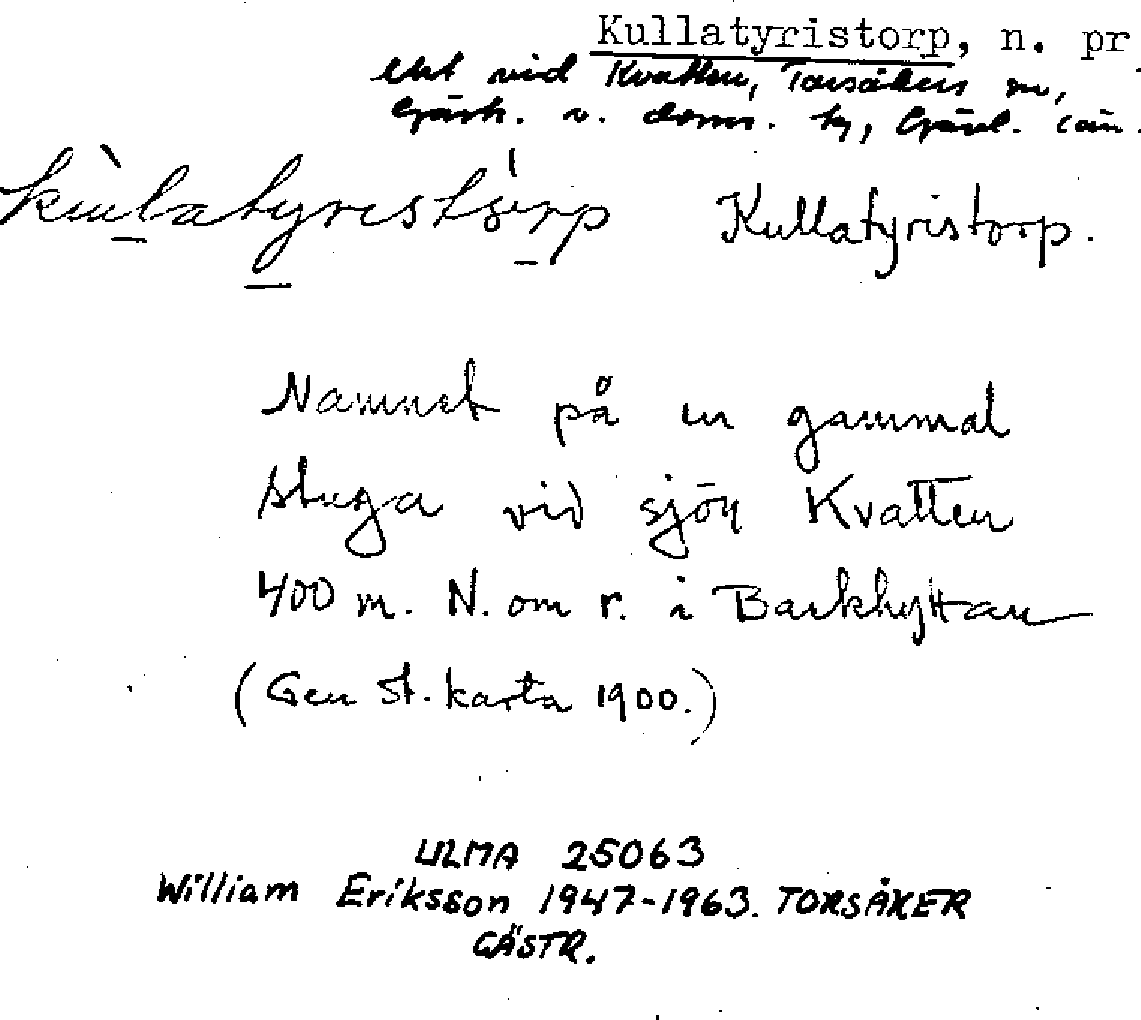 Kullatyristorp, n. pr.
vid Kvatten, Torsåkers sn,
Gästr. v. doms. tg, Gävl. län.
Kullatyristorp.
Namnet på en gammal
stuga vid sjön Kvatten
400 m. N. om r. i Barkhyttan
(Gen St. karta 1900.)
ULMA 25063
William Eriksson 1947-1963. TORSÅKER
GÄSTR.